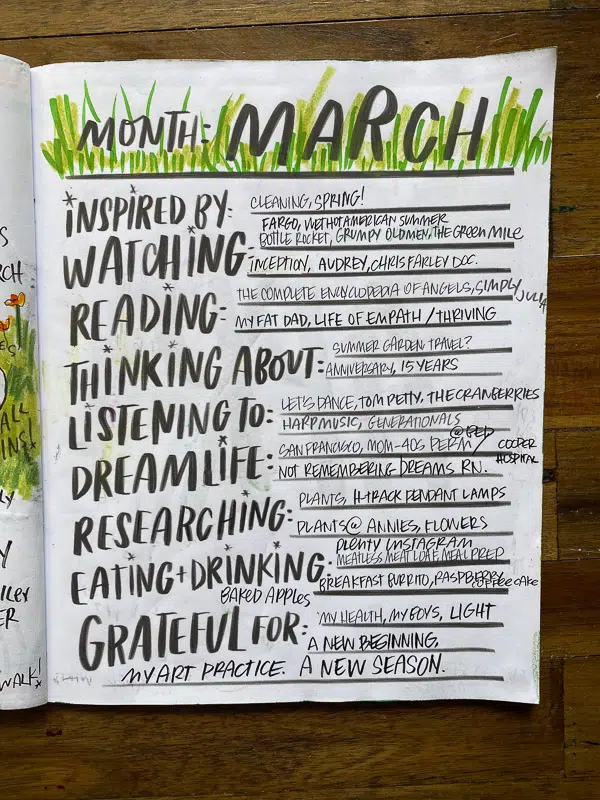 MONTH: MARCH
INSPIRED BY: CLEANING, SPRING!
FARGO, WETHOTAMERICAN SUMMER
WATCHING: BOTTLE ROCKET, GRUMPY OLD MEN, THE GREEN MILE
INCEPTION, AUDREY, CHRIS FARLEY DOC.
READING: THE COMPLETE ENCYCLOPEDIA OF ANGELS, SIMPLY JULIA
MY FAT DAD, LIFE OF EMPATH / THRIVING
THINKING ABOUT: SUMMER GARDEN, TRAVEL?
ANNIVERSARY, 15 YEARS
LISTENING TO: LET'S DANCE, TOM PETTY, THE CRANBERRIES
HARP MUSIC, GENERATIONALS
DREAM LIFE: SAN FRANCISCO, MOM-40S PERM/ COOPER HOSPITAL
NOT REMEMBERING DREAMS RN.
RESEARCHING: PLANTS, H-TRACK PENDANT LAMPS
PLANTS @ ANNIES, FLOWERS
PLENTY INSTAGRAM
EATING + DRINKING: MEATLESS MEATLOAF, MEAL PREP
BREAKFAST BURRITO, RASPBERRY COFFEECAKE
BAKED APPLES
GRATEFUL FOR: MY HEALTH, MY BOYS, LIGHT
A NEW BEGINNING,
MY ART PRACTICE. A NEW SEASON.
RCH
ALL
INS!
ILEY
ER
WALK!